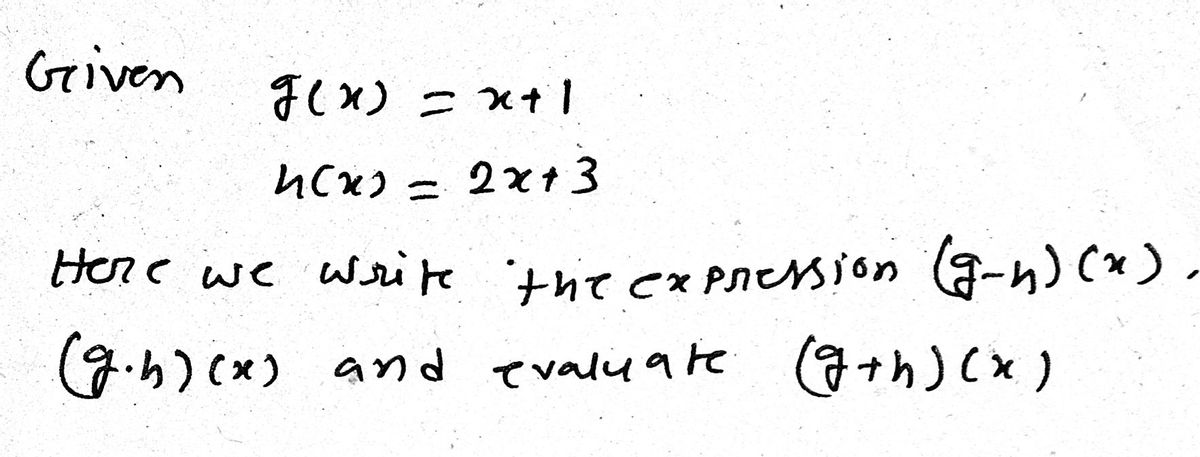 Given g(x) = x+1
h(x) = 2x+3
Here we write the expression (g-h)(x),
(g.h)(x) and evaluate (g+h)(x)